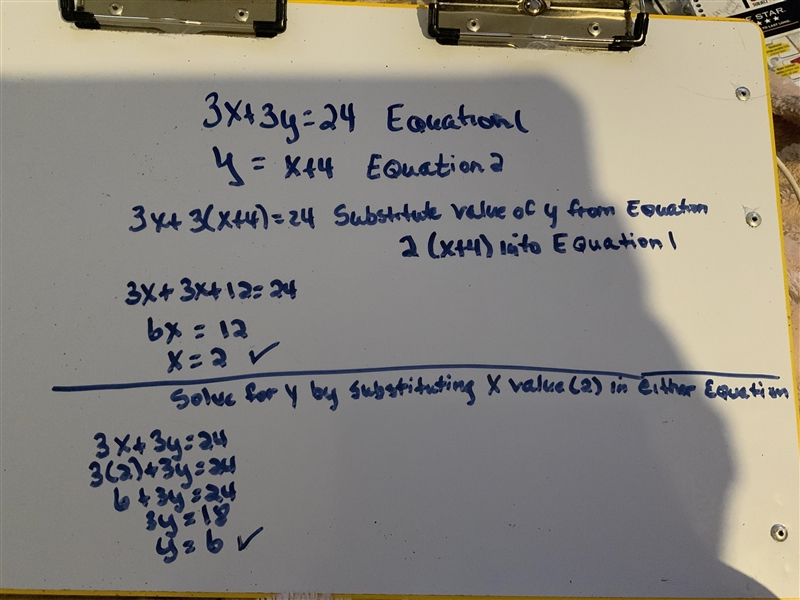 E STAR
3x+3y=24 Equation 1
y = x+4 Equation 2
3x+3(x+4)=24 Substitute value of y from Equation
2 (x+4) into Equation 1
3x+3x+12=24
6x = 12
x=2 ✓
Solve for y by substituting x value (2) in Either Equation
3x+3y=24
3(2)+3y=24
6+3y=24
3y=18
y=6 ✓